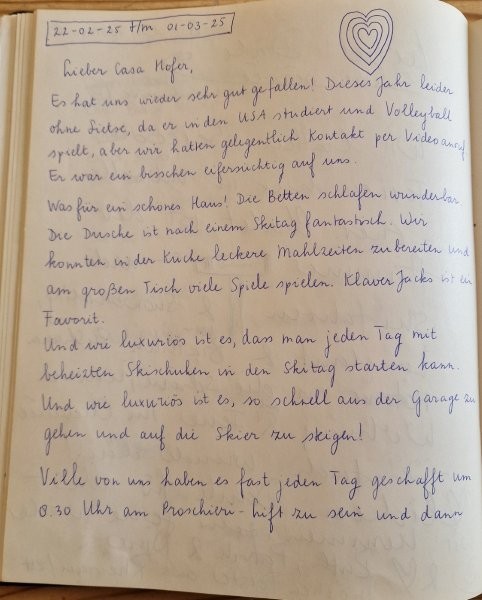 22-02-25 t/m 01-03-25
Lieber Casa Hofer,
Es hat uns wieder sehr gut gefallen! Dieses Jahr leider
ohne Sietse, da er in den USA studiert und Volleyball
spielt, aber wir hatten gelegentlich Kontakt per Videoanruf
Er war ein bisschen eifersüchtig auf uns.
Was für ein schönes Haus! Die Betten schlafen wunderbar
Die Dusche ist nach einem Skitag fantastisch. Wir
konnten in der Küche leckere Mahlzeiten zubereiten und
am großen Tisch viele Spiele spielen. KlaverJacks ist ein
Favorit.
Und wie luxuriös ist es, dass man jeden Tag mit
beheizten Skischuhen in den Skitag starten kann.
Und wie luxuriös ist es, so schnell aus der Garage zu
gehen und auf die Skier zu steigen!
Ville von uns haben es fast jeden Tag geschafft um
8.30 Uhr am Proschieri-Lift zu sein und dann